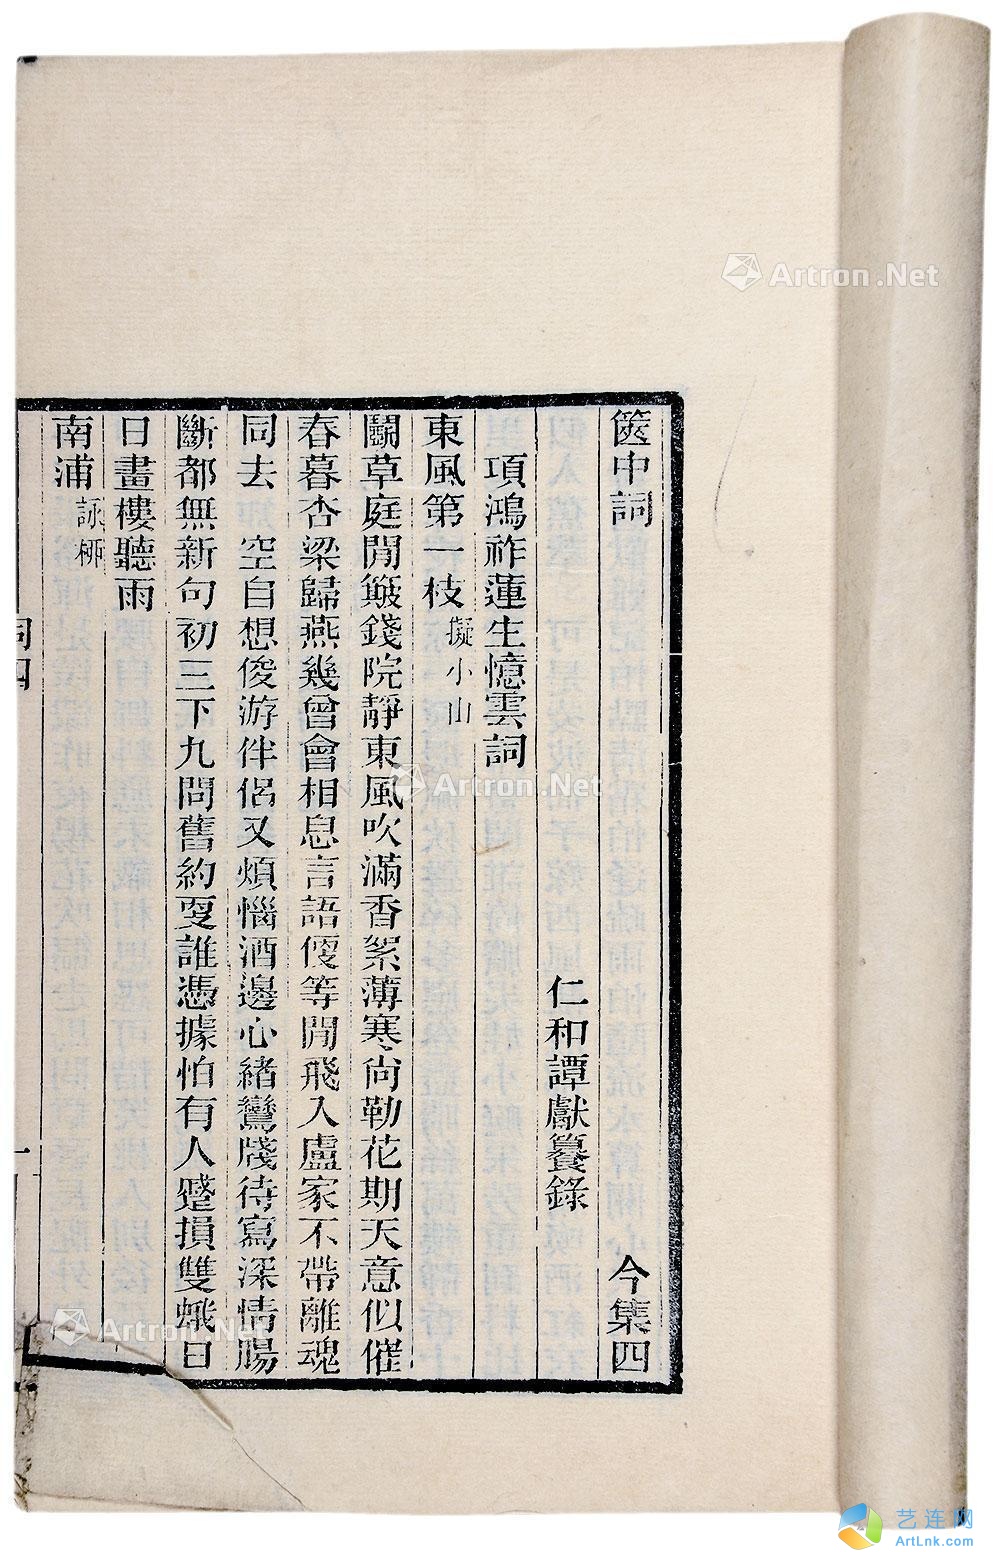 篋中詞 今集四
仁和譚獻纂錄
項鴻祚蓮生憶雲詞
東風第一枝 擬小山
鬭草庭閒簸錢院靜東風吹滿香絮薄寒尙勒花期天意似催
春暮杏梁歸燕幾曾會相思言語便等閒飛入盧家不帶離魂
同去 空自想俊游伴侶又煩惱酒邊心緒鸞牋待寫深情腸
斷都無新句初三下九問舊約更誰憑據怕有人蹙損雙蛾日
日畫樓聽雨
南浦 詠柳
詞四
一
Artron.Net
Artron.Net
Artron.Net
艺连网
ArtLnk.com